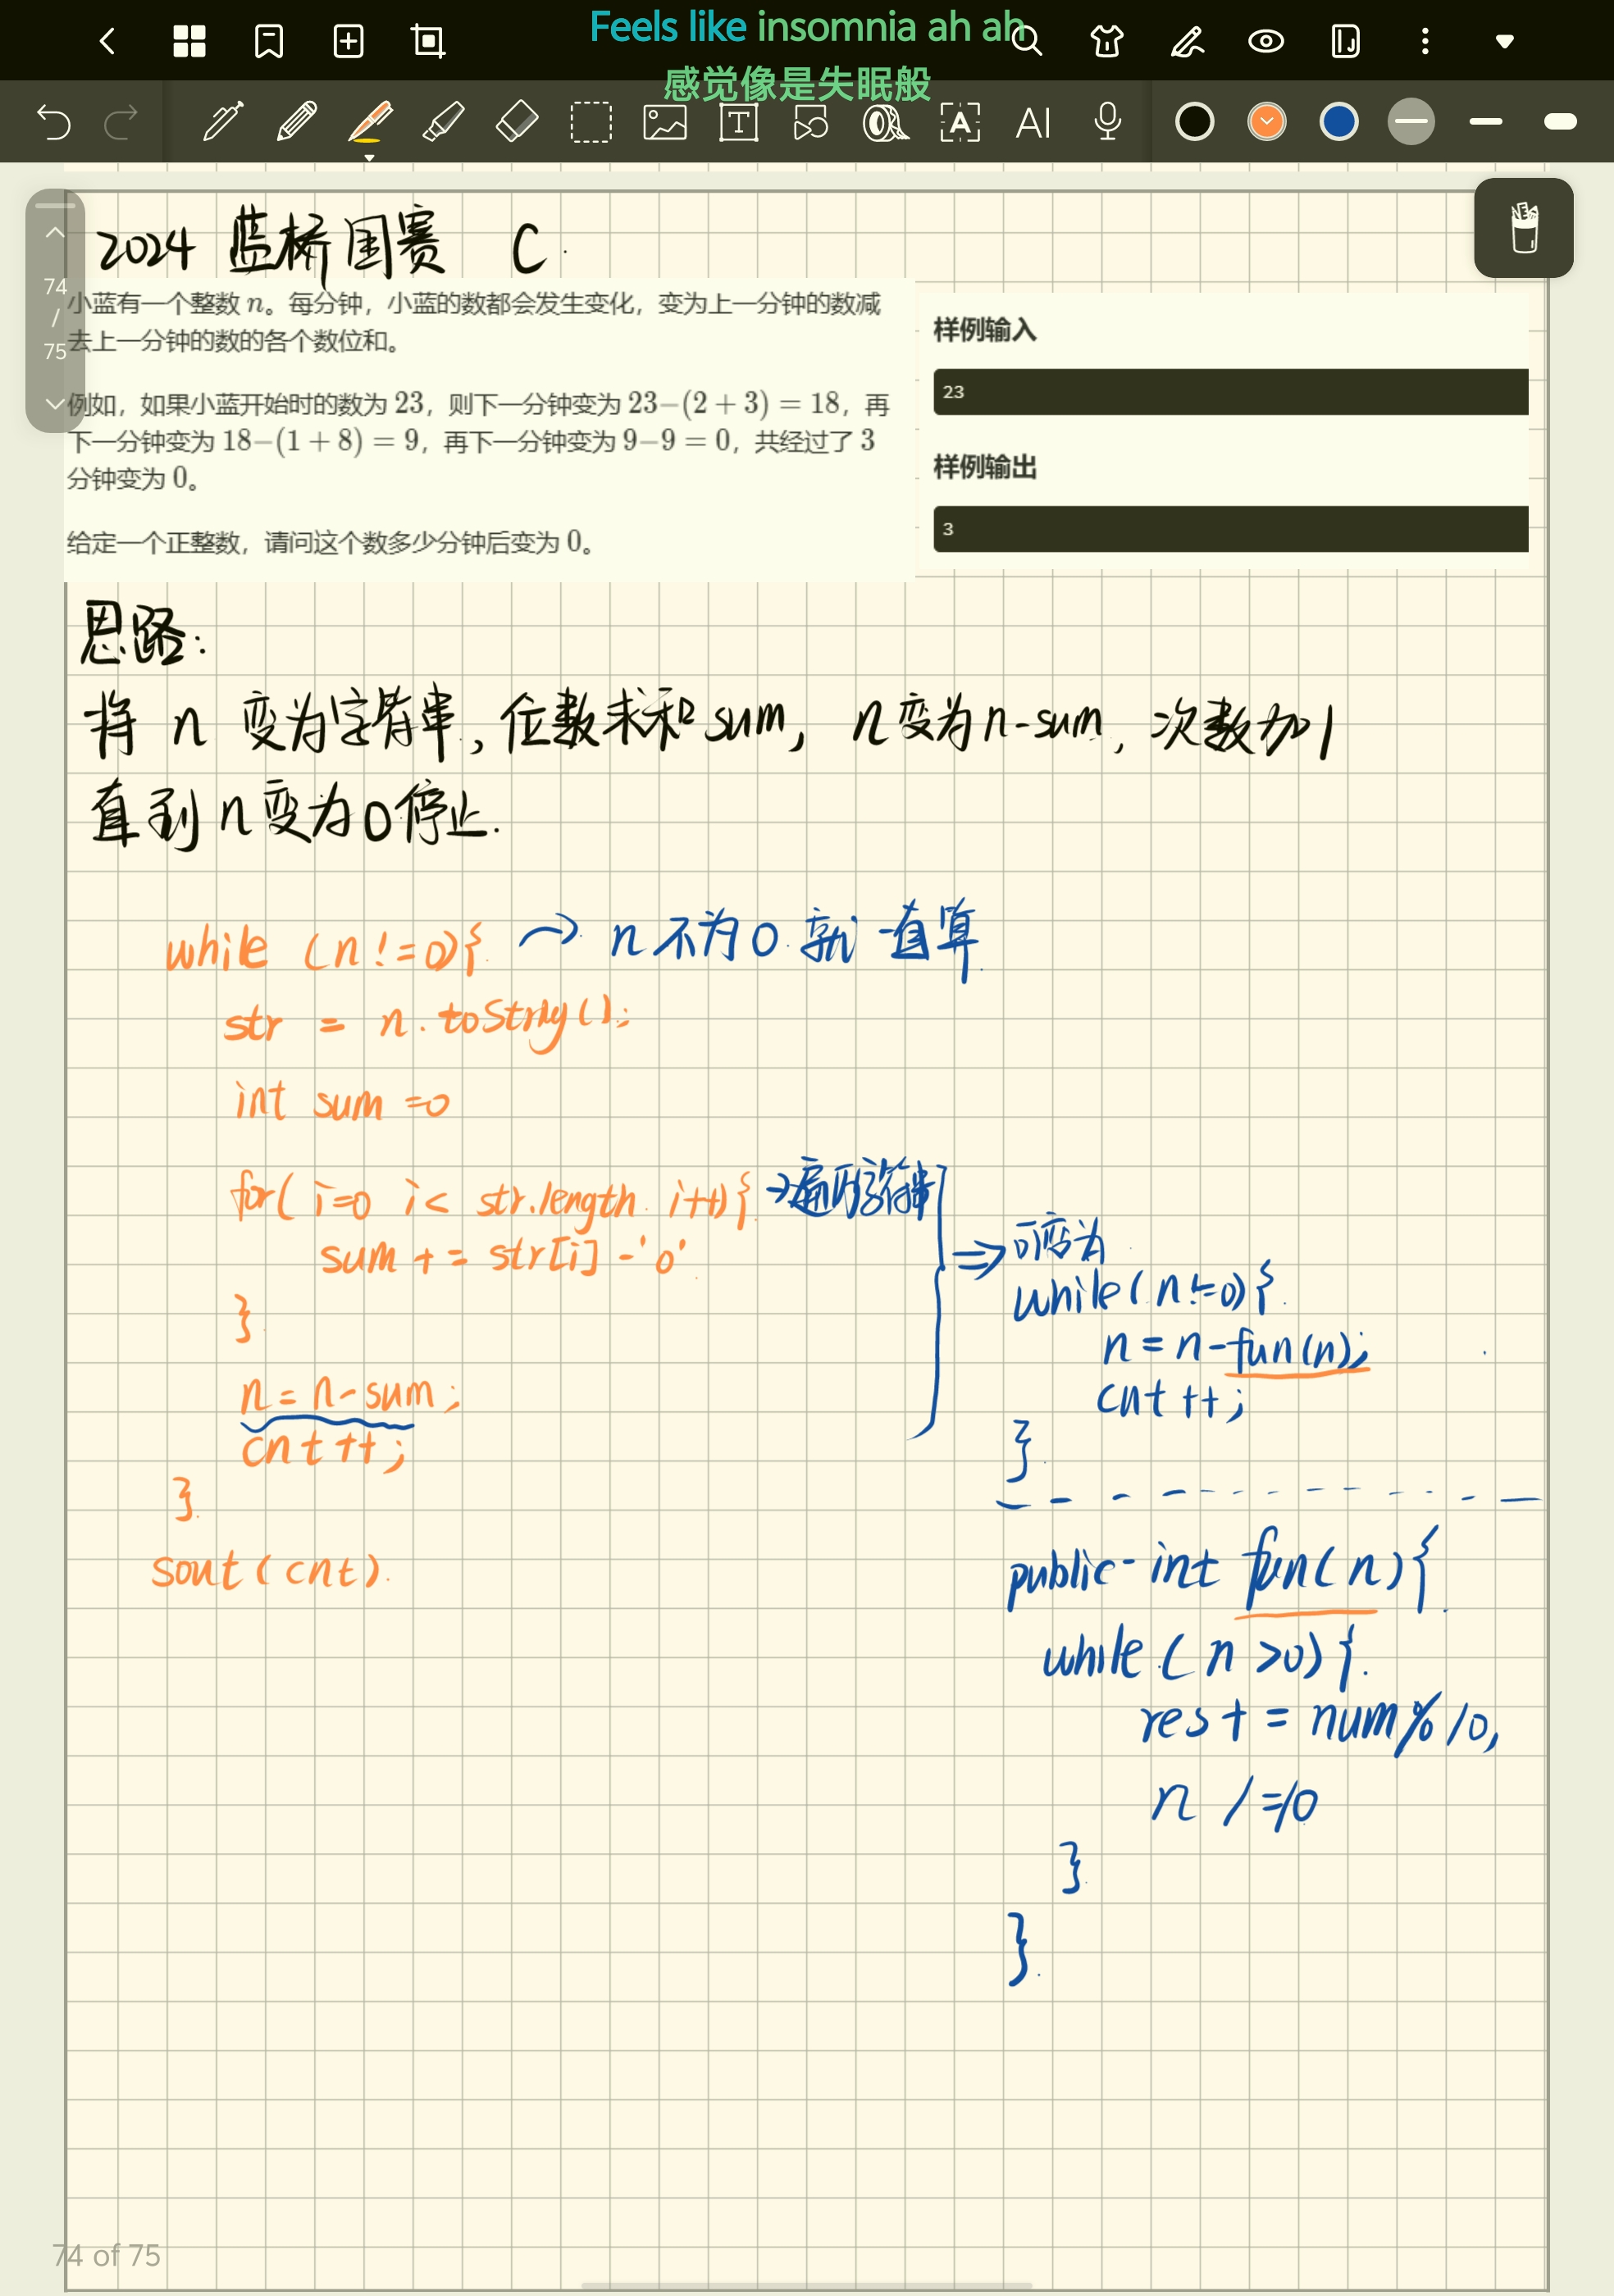 Feels like insomnia ah ah
感觉像是失眠般
AI
74
/
75
2024 蓝桥国赛 C.
小蓝有一个整数 n。每分钟，小蓝的数都会发生变化，变为上一分钟的数减
去上一分钟的数的各个数位和。
例如，如果小蓝开始时的数为 23，则下一分钟变为 23−(2 + 3) = 18，再
下一分钟变为 18−(1 + 8) = 9，再下一分钟变为 9−9 = 0，共经过了 3
分钟变为 0。
给定一个正整数，请问这个数多少分钟后变为 0。
样例输入
23
样例输出
3
思路：
将 n 变为字符串，位数求和 sum，n变为n-sum，次数加1
直到n变为0停止.
while (n!=0){ → n不为0就一直算
str = n.toString();
int sum =0
for( i=0 i< str.length i++){ →遍历字符串
sum += str[i] -'0'
}
n = n-sum;
cnt++;
}
sout(cnt).
⇒ 可变为
while(n!=0){
n = n-fun(n);
cnt++;
}
public int fun(n){
while(n>0){
res += num%10,
n /=10
}
}
74 of 75